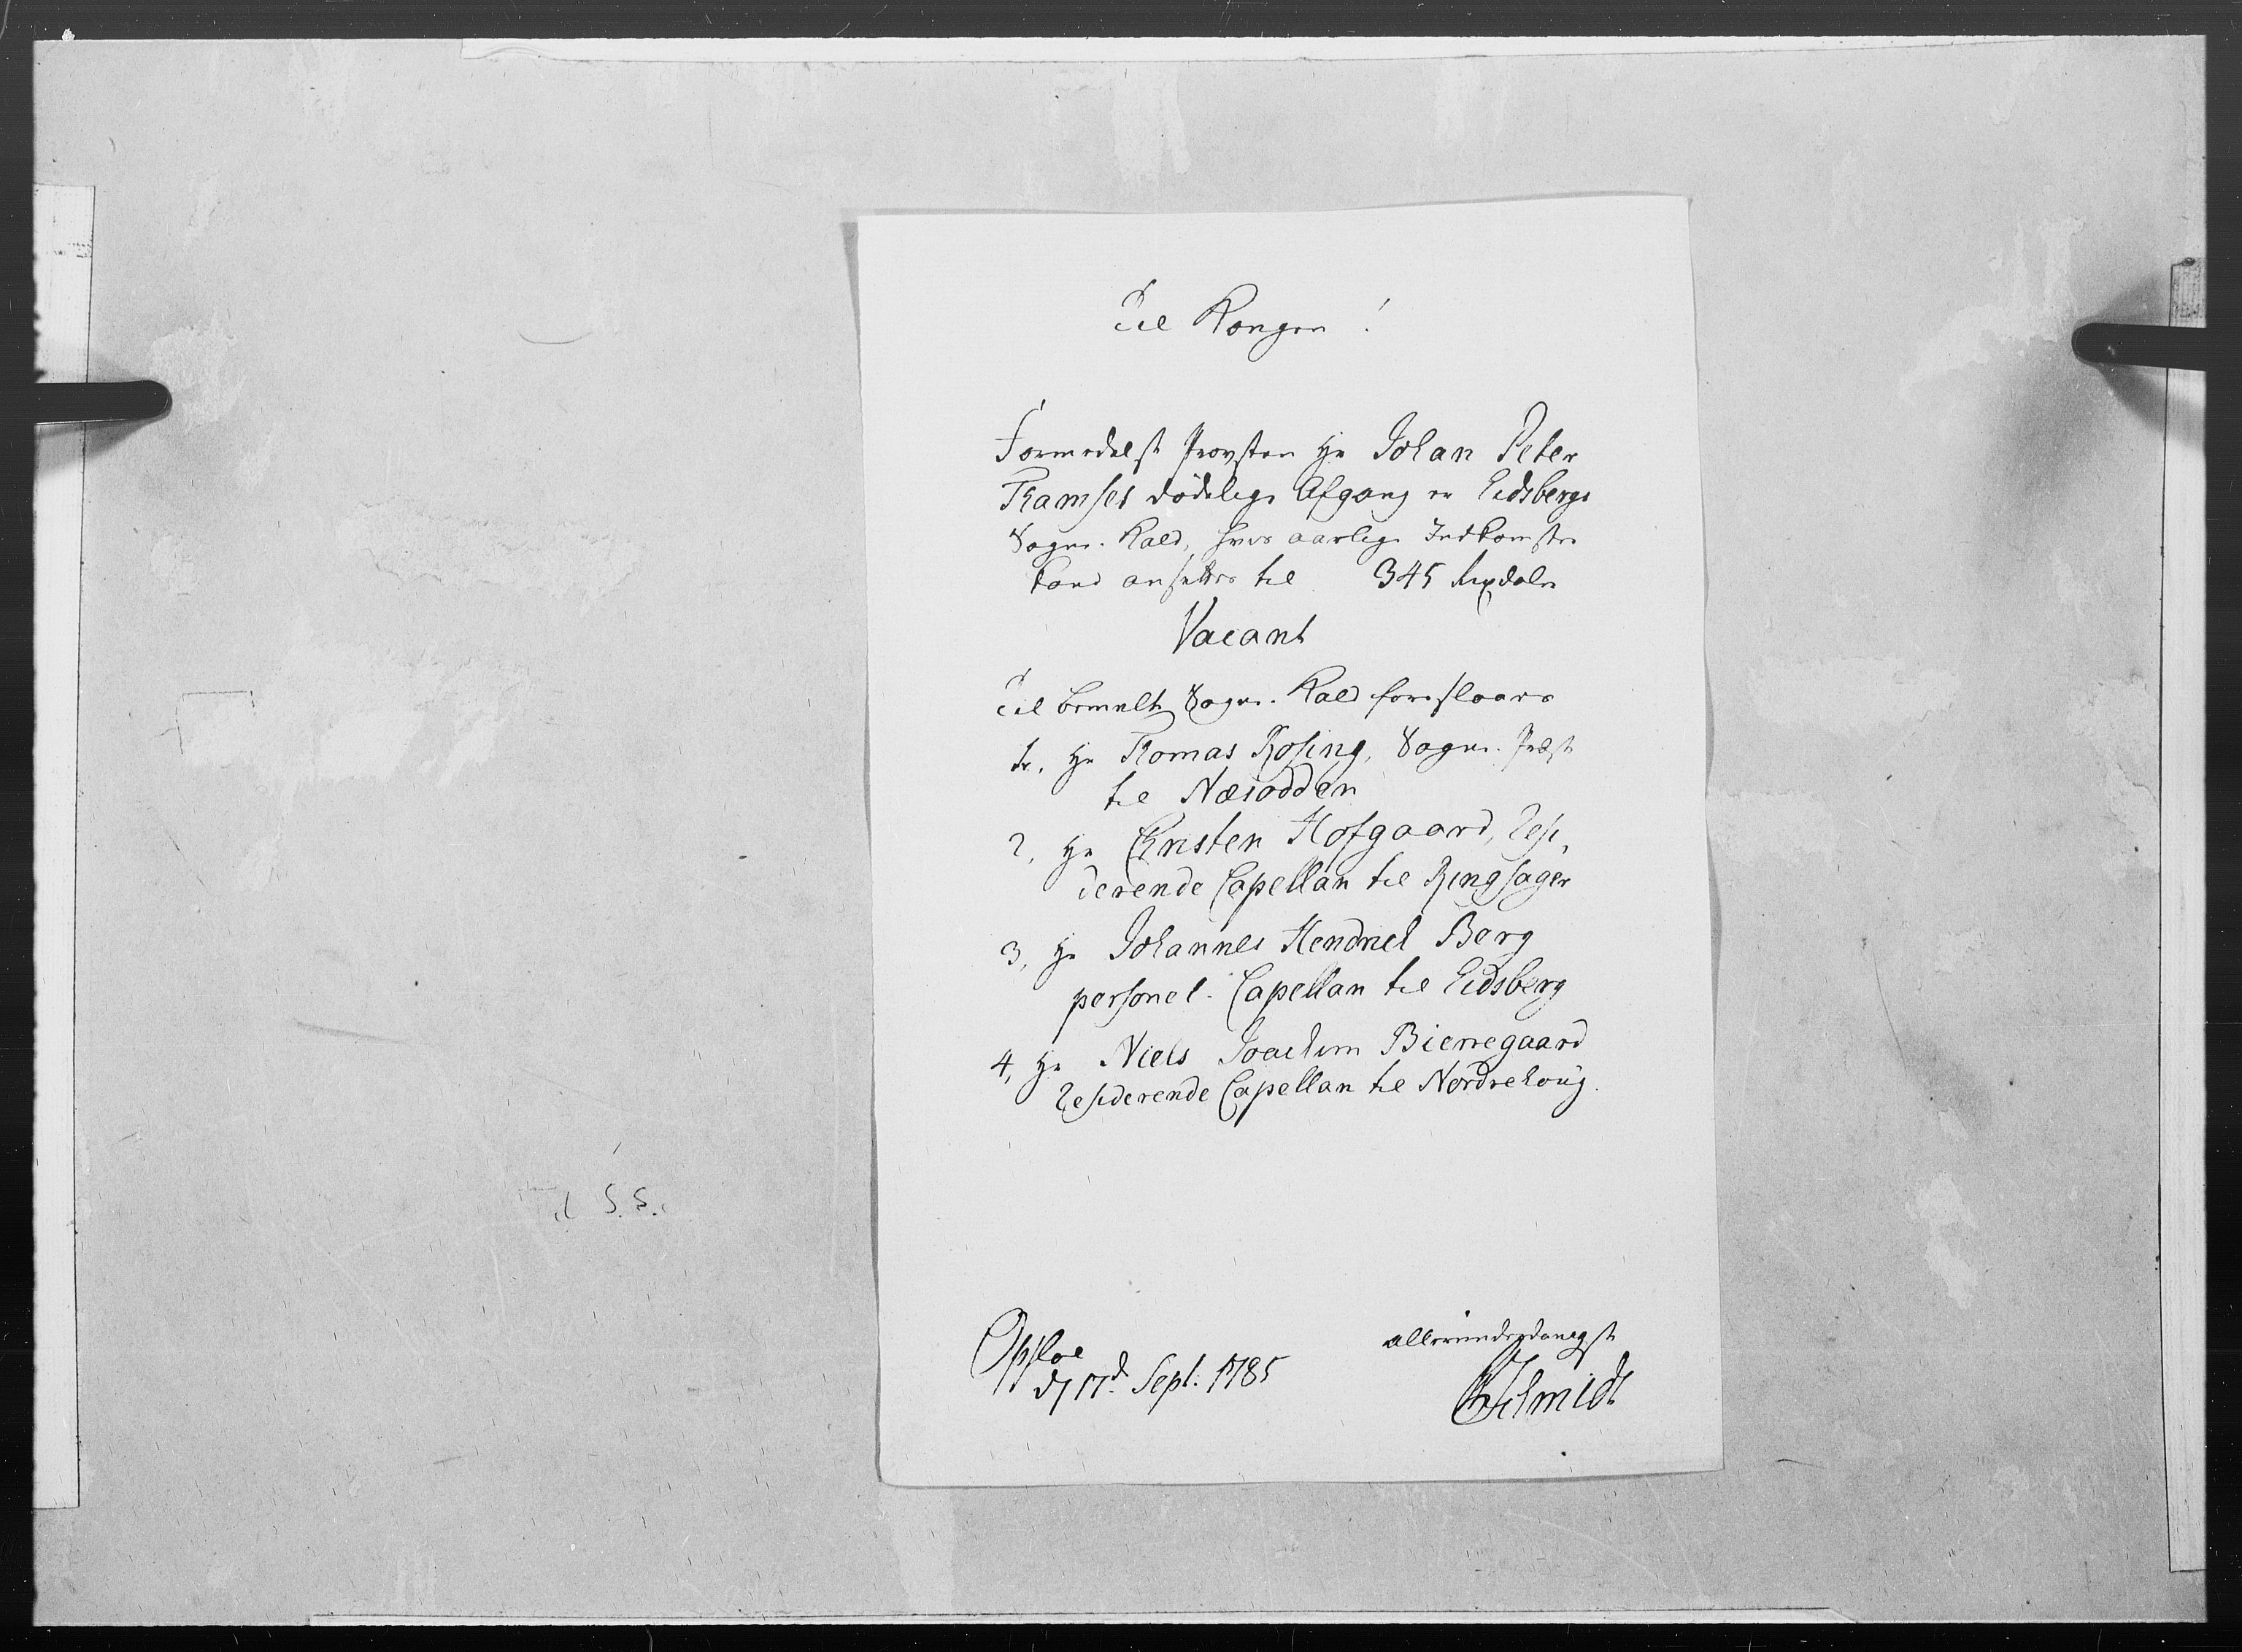 Til Kongen!
Formedelst Provsten Hr Johan Peter
Thamses dødelige Afgang er Eidsbergs
Sogne-Kald, hvis aarlige Indkomster
kand ansettes til 345 Rixdaler
Vacant
Til bemelte Sogne-Kald foreslaaes
1, Hr Thomas Rosing, Sogne-Præst
til Næsodden
2, Hr Christen Hofgaard, Resi-
derende Capellan til Ringsager
3, Hr Johannes Hendrich Berg
personel-Capellan til Eidsberg
4, Hr Niels Joachim Bierregaard
Residerende Capellan til Nordrehoug.
Opsloe
d 17d Sept. 1785
allerunderdanigst
Schmidt
S. S.